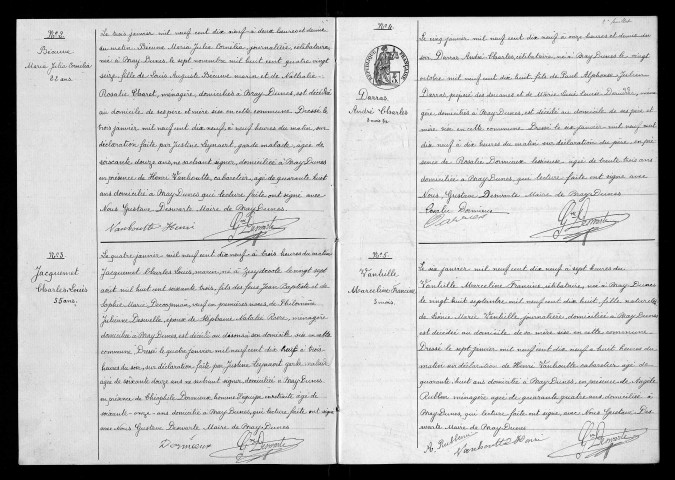 N° 2
Bécuwe
Maria Julia Cornélia
32 ans
Le trois janvier mil neuf cent dix neuf à deux heures et demie
du matin Bécuwe Maria Julia Cornélia, journalière, célibataire,
née à Bray-Dunes le sept novembre mil huit cent quatre vingt
six, fille de Louis Auguste Bécuwe marin et de Nathalie
Rosalie Charet, ménagère, domiciliés à Bray-Dunes, est décédée
au domicile de ses père et mère sise en cette commune. Dressé le
trois janvier mil neuf cent dix neuf à neuf heures du matin, sur
déclaration faite par Justine Leynaert, garde malade, âgée de
soixante douze ans, ne sachant signer, domiciliée à Bray-Dunes
en présence de Henri Vanhoutte, cabaretier, âgé de quarante huit
ans domicilié à Bray-Dunes, qui lecture faite ont signé avec
Nous Gustave Deswarte Maire de Bray-Dunes
Vanhoutte Henri
Gve Deswarte
N° 3
Jacquemet
Charles Louis
55 ans
Le quatre janvier mil neuf cent dix neuf à trois heures du matin
Jacquemet Charles Louis, marin, né à Zuydcoote le vingt sept
août mil huit cent soixante trois, fils des feus Jean Baptiste et de
Sophie Marie Decoopman, veuf en premières noces de Philomène
Julienne Desmelle, époux de Stéphanie Natalie Bère, ménagère
domiciliée à Bray-Dunes, est décédé au domicile sis en cette
commune. Dressé le quatre janvier mil neuf cent dix neuf à trois
heures du soir, sur déclaration faite par Justine Leynaert garde malade,
âgée de soixante douze ans ne sachant signer, domiciliée à Bray-Dunes
en présence de Théophile Dormieux, homme d'équipe retraité âgé de
soixante-onze ans domicilié à Bray-Dunes, qui lecture faite ont signé
avec Nous Gustave Deswarte Maire de Bray-Dunes
Dormieux
Gve Deswarte
N° 4
Darras
André Charles
Le cinq janvier mil neuf cent dix neuf à onze heures et demie du
soir Darras André Charles, célibataire, né à Bray-Dunes le vingt
octobre mil neuf cent dix huit, fils de Paul Alphonse Julien
Darras, préposé des douanes et de Marie
domiciliés à Bray-Dunes est décédé au domicile de ses père et
mère sise en cette commune. Dressé le six janvier mil neuf cent
dix neuf à dix heures du matin sur déclaration du père, en pré-
sence de Rosalie Dormieux âgée de trente trois ans
domiciliée à Bray-Dunes, qui lecture faite ont signé avec
Nous, Gustave Deswarte Maire de Bray-Dunes
Rosalie Dormieux
Gve Deswarte
N° 5
Vantielle
Marceline Francine
3 mois
Le six janvier mil neuf cent dix neuf à sept heures du
Vantielle Marceline Francine, célibataire, née à Bray-Dunes
le vingt huit septembre mil neuf cent dix huit, fille naturelle
de Marie Vantielle journalière, domiciliée à Bray-Dunes
est décédée au domicile de sa mère sise en cette commune
Dressé le sept janvier mil neuf cent dix neuf à huit heures du
matin sur déclaration de Henri Vanhoutte cabaretier âgé de
quarante huit ans domicilié à Bray-Dunes, en présence de Angèle
Rubben ménagère âgée de quarante quatre ans domiciliée à
Bray-Dunes, qui lecture faite ont signé, avec Nous Gustave Des-
warte Maire de Bray-Dunes
A. Rubben
Vanhoutte Henri
Gve Deswarte